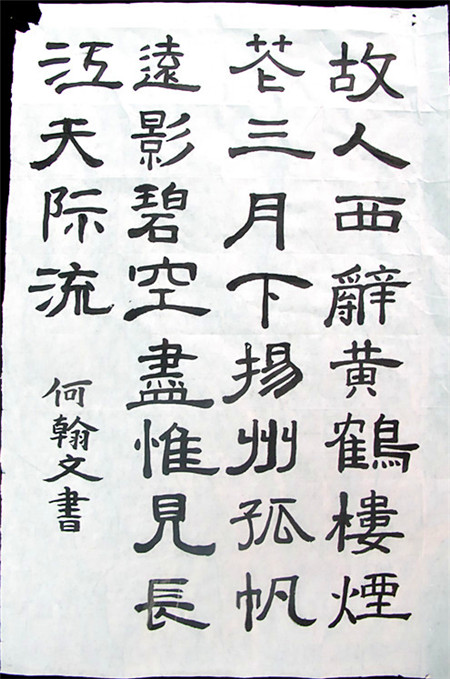 故人西辭黄鶴樓煙
芲三月下揚州孤帆
遠影碧空盡惟見長
江天际流
何翰文書